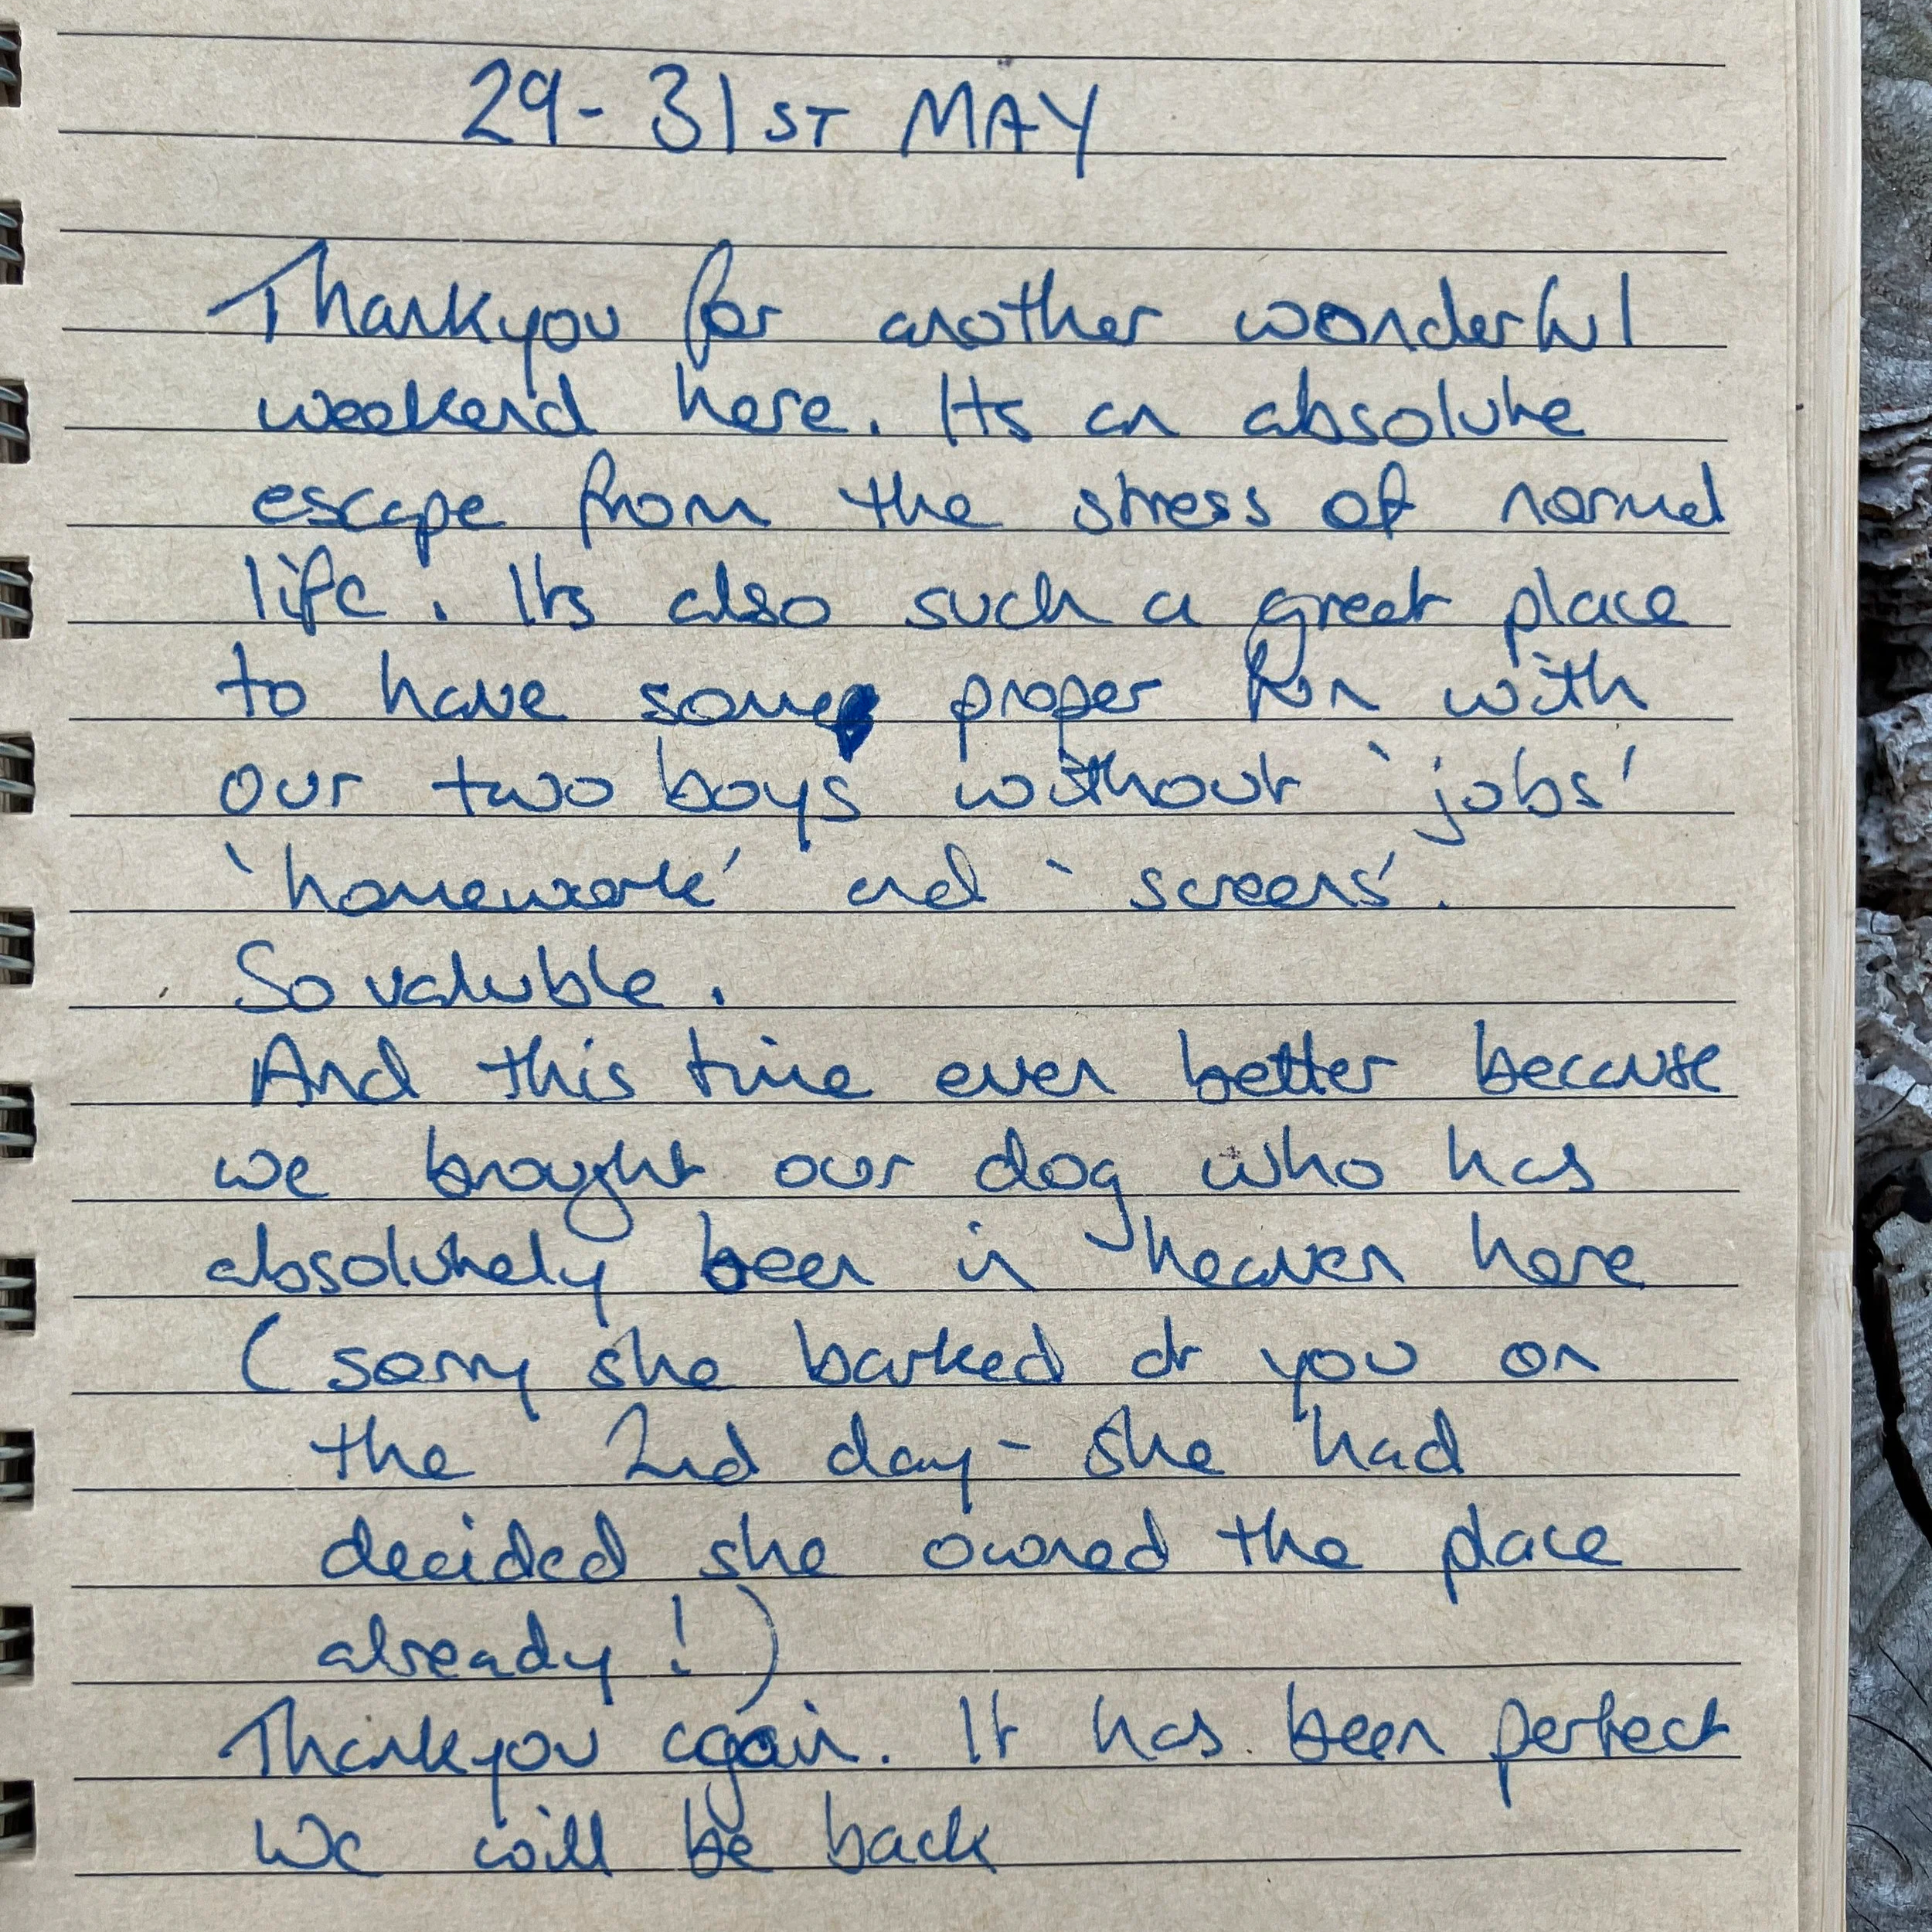 29- 31ST MAY
Thankyou for another wonderful
weekend here. Its an absolute
escape from the stress of normal
life. Its also such a great place
to have some proper fun with
our two boys without 'jobs'
'homework' and 'screens'.
So valuble.
And this time even better because
we brought our dog who has
absolutely been in heaven here
(sorry she barked at you on
the 2nd day- she had
decided she owned the place
already!)
Thankyou again. It has been perfect
We will be back